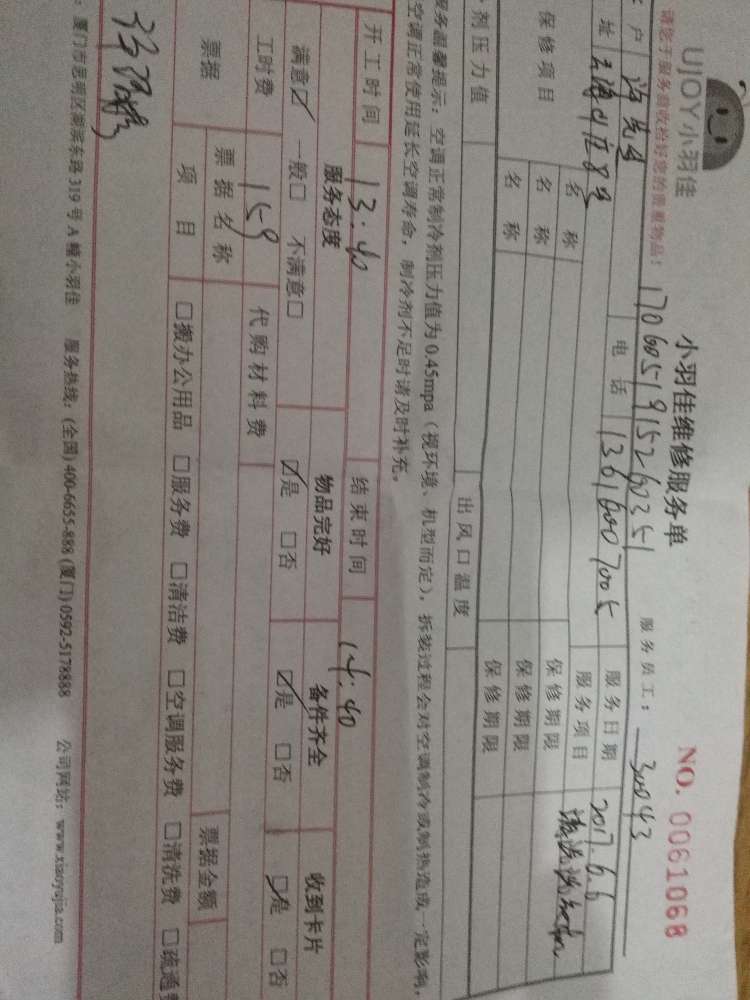 UJOY小羽佳
小羽佳维修服务单
NO. 0061068
请您于服务前收拾好您的贵重物品!
1706051915260351
服务员工: 30043
户
电话 13616007005 服务日期 2017.6.6
址 8号 服务项目 清洗洗
保修项目 名称 保修期限
名称 保修期限
名称 保修期限
剂压力值 出风口温度
服务温馨提示: 空调正常制冷剂压力值为0.45mpa(视环境、机型而定), 拆装过程会对空调制冷或制热造成一定影响,
空调正常使用延长空调寿命, 制冷剂不足时请及时补充。
开工时间 13:40 结束时间 14:40
服务态度 物品完好 备件齐全 收到卡片
满意☑ 一般□ 不满意□ ☑是 □否 ☑是 □否 ☑是 □否
工时费 159 代购材料费
票据 票据名称 票据金额
项目 □搬办公用品 □服务费 □清洁费 □空调服务费 □清洗费 □疏通费
: 厦门市思明区湖滨东路319号A幢小羽佳 服务热线: (全国) 400-6655-888 (厦门) 0592-5178888 公司网站: www.xiaoyujia.com